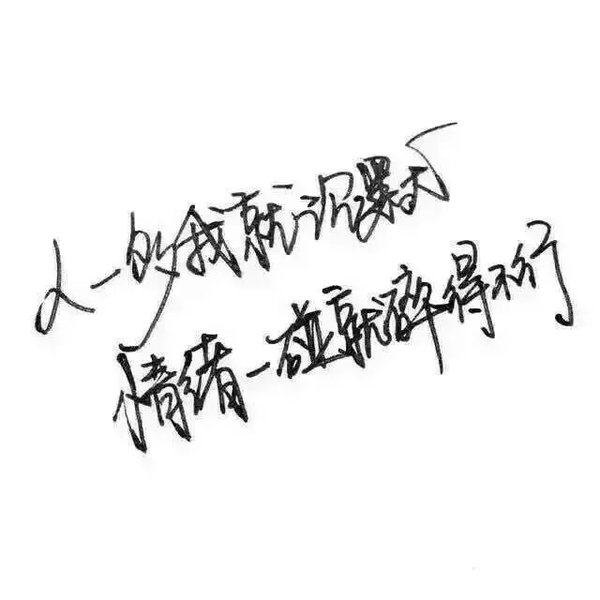 人一的我就沉
情绪一碰就碎得不行